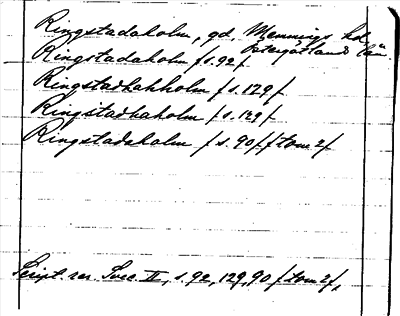 Ringstadaholm, gd, Memmings hd
Östergötlands län
Ringstadaholm /s. 92/
Ringstadhahholm /s. 129/
Ringstadhaholm /s. 129/
Ringstadaholm /s. 90/ /tom 2/
Script. rer. Svec. II, s. 92, 129, 90 /tom 2/,